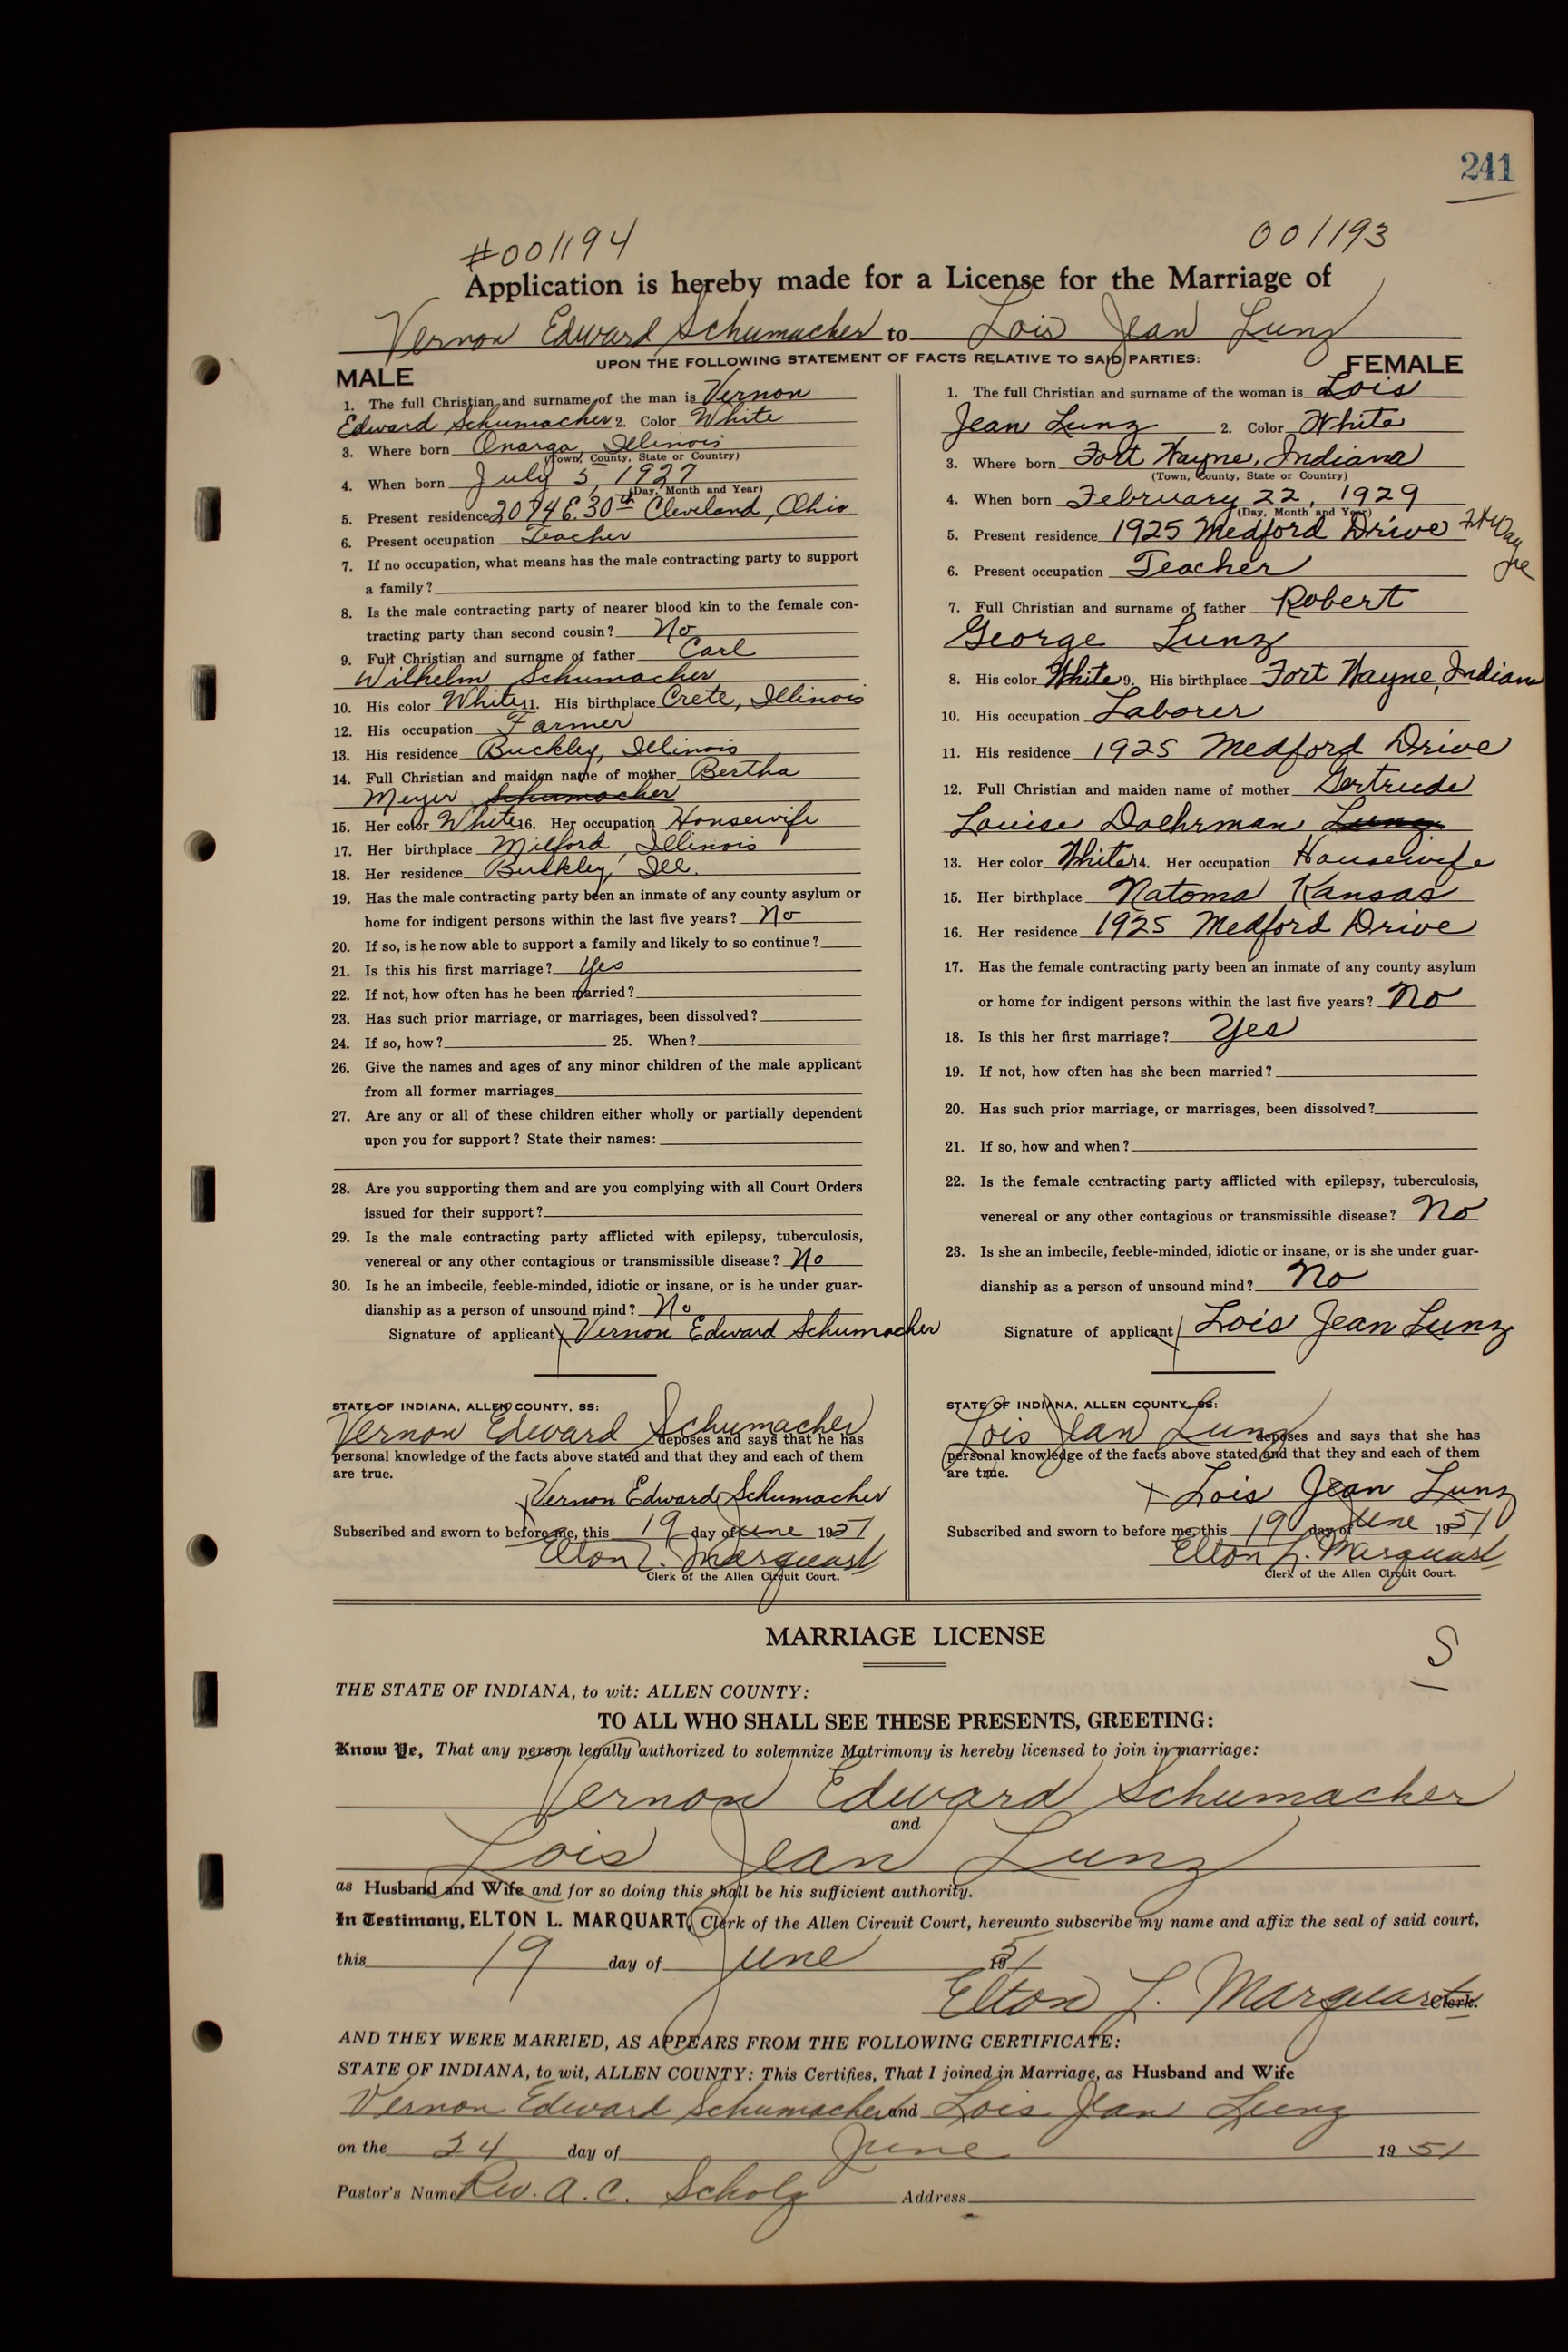 241
#001194 001193
Application is hereby made for a License for the Marriage of
Vernon Edward Schumacher to Lois Jean Lunz
UPON THE FOLLOWING STATEMENT OF FACTS RELATIVE TO SAID PARTIES:
MALE
1. The full Christian and surname of the man is Vernon
Edward Schumacher 2. Color White
3. Where born Onarga, Illinois
(Town, County, State or Country)
4. When born July 5, 1927
(Day, Month and Year)
5. Present residence 2074 E. 30th Cleveland, Ohio
6. Present occupation Teacher
7. If no occupation, what means has the male contracting party to support
a family?
8. Is the male contracting party of nearer blood kin to the female con-
tracting party than second cousin? No
9. Full Christian and surname of father Carl
Wilhelm Schumacher
10. His color White 11. His birthplace Crete, Illinois
12. His occupation Farmer
13. His residence Buckley, Illinois
14. Full Christian and maiden name of mother Bertha
Meyer Schumacher
15. Her color White 16. Her occupation Housewife
17. Her birthplace Milford, Illinois
18. Her residence Buckley, Ill.
19. Has the male contracting party been an inmate of any county asylum or
home for indigent persons within the last five years? No
20. If so, is he now able to support a family and likely to so continue?
21. Is this his first marriage? Yes
22. If not, how often has he been married?
23. Has such prior marriage, or marriages, been dissolved?
24. If so, how? 25. When?
26. Give the names and ages of any minor children of the male applicant
from all former marriages
27. Are any or all of these children either wholly or partially dependent
upon you for support? State their names:
28. Are you supporting them and are you complying with all Court Orders
issued for their support?
29. Is the male contracting party afflicted with epilepsy, tuberculosis,
venereal or any other contagious or transmissible disease? No
30. Is he an imbecile, feeble-minded, idiotic or insane, or is he under guar-
dianship as a person of unsound mind? No
Signature of applicant Vernon Edward Schumacher
STATE OF INDIANA, ALLEN COUNTY, SS:
Vernon Edward Schumacher deposes and says that he has
personal knowledge of the facts above stated and that they and each of them
are true.
Vernon Edward Schumacher
Subscribed and sworn to before me, this 19 day of June 1951
Elton L. Marquart
Clerk of the Allen Circuit Court.
FEMALE
1. The full Christian and surname of the woman is Lois
Jean Lunz 2. Color White
3. Where born Fort Wayne, Indiana
(Town, County, State or Country)
4. When born February 22, 1929
(Day, Month and Year)
5. Present residence 1925 Medford Drive Ft Wayne
6. Present occupation Teacher
7. Full Christian and surname of father Robert
George Lunz
8. His color White 9. His birthplace Fort Wayne, Indiana
10. His occupation Laborer
11. His residence 1925 Medford Drive
12. Full Christian and maiden name of mother Gertrude
Louise Doehrman Lunz
13. Her color White 14. Her occupation Housewife
15. Her birthplace Natoma, Kansas
16. Her residence 1925 Medford Drive
17. Has the female contracting party been an inmate of any county asylum
or home for indigent persons within the last five years? No
18. Is this her first marriage? Yes
19. If not, how often has she been married?
20. Has such prior marriage, or marriages, been dissolved?
21. If so, how and when?
22. Is the female contracting party afflicted with epilepsy, tuberculosis,
venereal or any other contagious or transmissible disease? No
23. Is she an imbecile, feeble-minded, idiotic or insane, or is she under guar-
dianship as a person of unsound mind? No
Signature of applicant Lois Jean Lunz
STATE OF INDIANA, ALLEN COUNTY, SS:
Lois Jean Lunz deposes and says that she has
personal knowledge of the facts above stated and that they and each of them
are true.
X Lois Jean Lunz
Subscribed and sworn to before me, this 19 day of June 1951
Elton L. Marquart
Clerk of the Allen Circuit Court.
MARRIAGE LICENSE
S
THE STATE OF INDIANA, to wit: ALLEN COUNTY:
TO ALL WHO SHALL SEE THESE PRESENTS, GREETING:
Know Ye, That any person legally authorized to solemnize Matrimony is hereby licensed to join in marriage:
Vernon Edward Schumacher
and
Lois Jean Lunz
as Husband and Wife and for so doing this shall be his sufficient authority.
In Testimony, ELTON L. MARQUART, Clerk of the Allen Circuit Court, hereunto subscribe my name and affix the seal of said court,
this 19 day of June 1951
Elton L. Marquart Clerk.
AND THEY WERE MARRIED, AS APPEARS FROM THE FOLLOWING CERTIFICATE:
STATE OF INDIANA, to wit, ALLEN COUNTY: This Certifies, That I joined in Marriage, as Husband and Wife
Vernon Edward Schumacher and Lois Jean Lunz
on the 24 day of June 1951
Pastor's Name Rev. A. C. Scholz Address